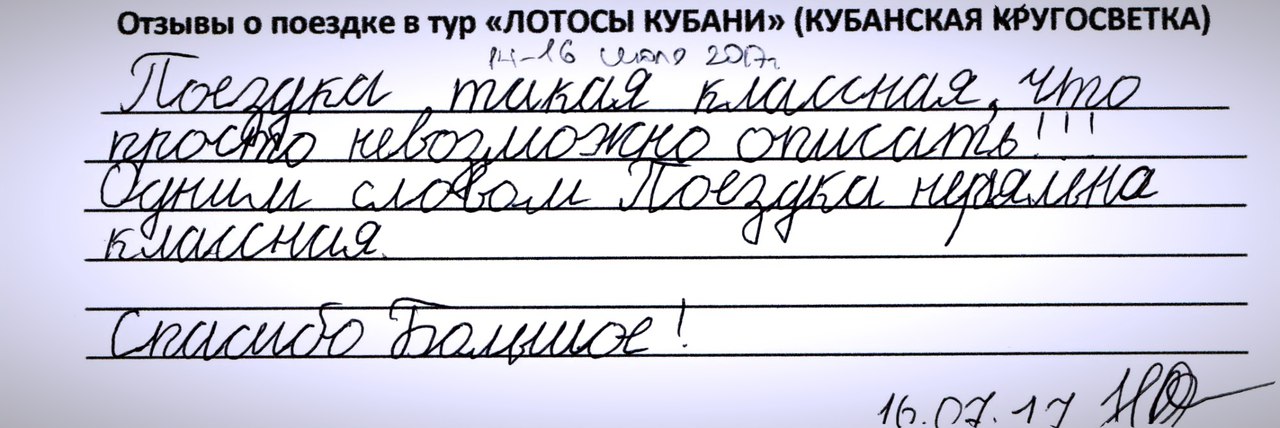 Отзывы о поездке в тур «ЛОТОСЫ КУБАНИ» (КУБАНСКАЯ КРУГОСВЕТКА)
14-16 июля 2017г.
Поездка, такая классная, что
просто невозможно описать!!!
Одним словом Поездка неряльна
классная.
Спасибо Большое!
16.07.17